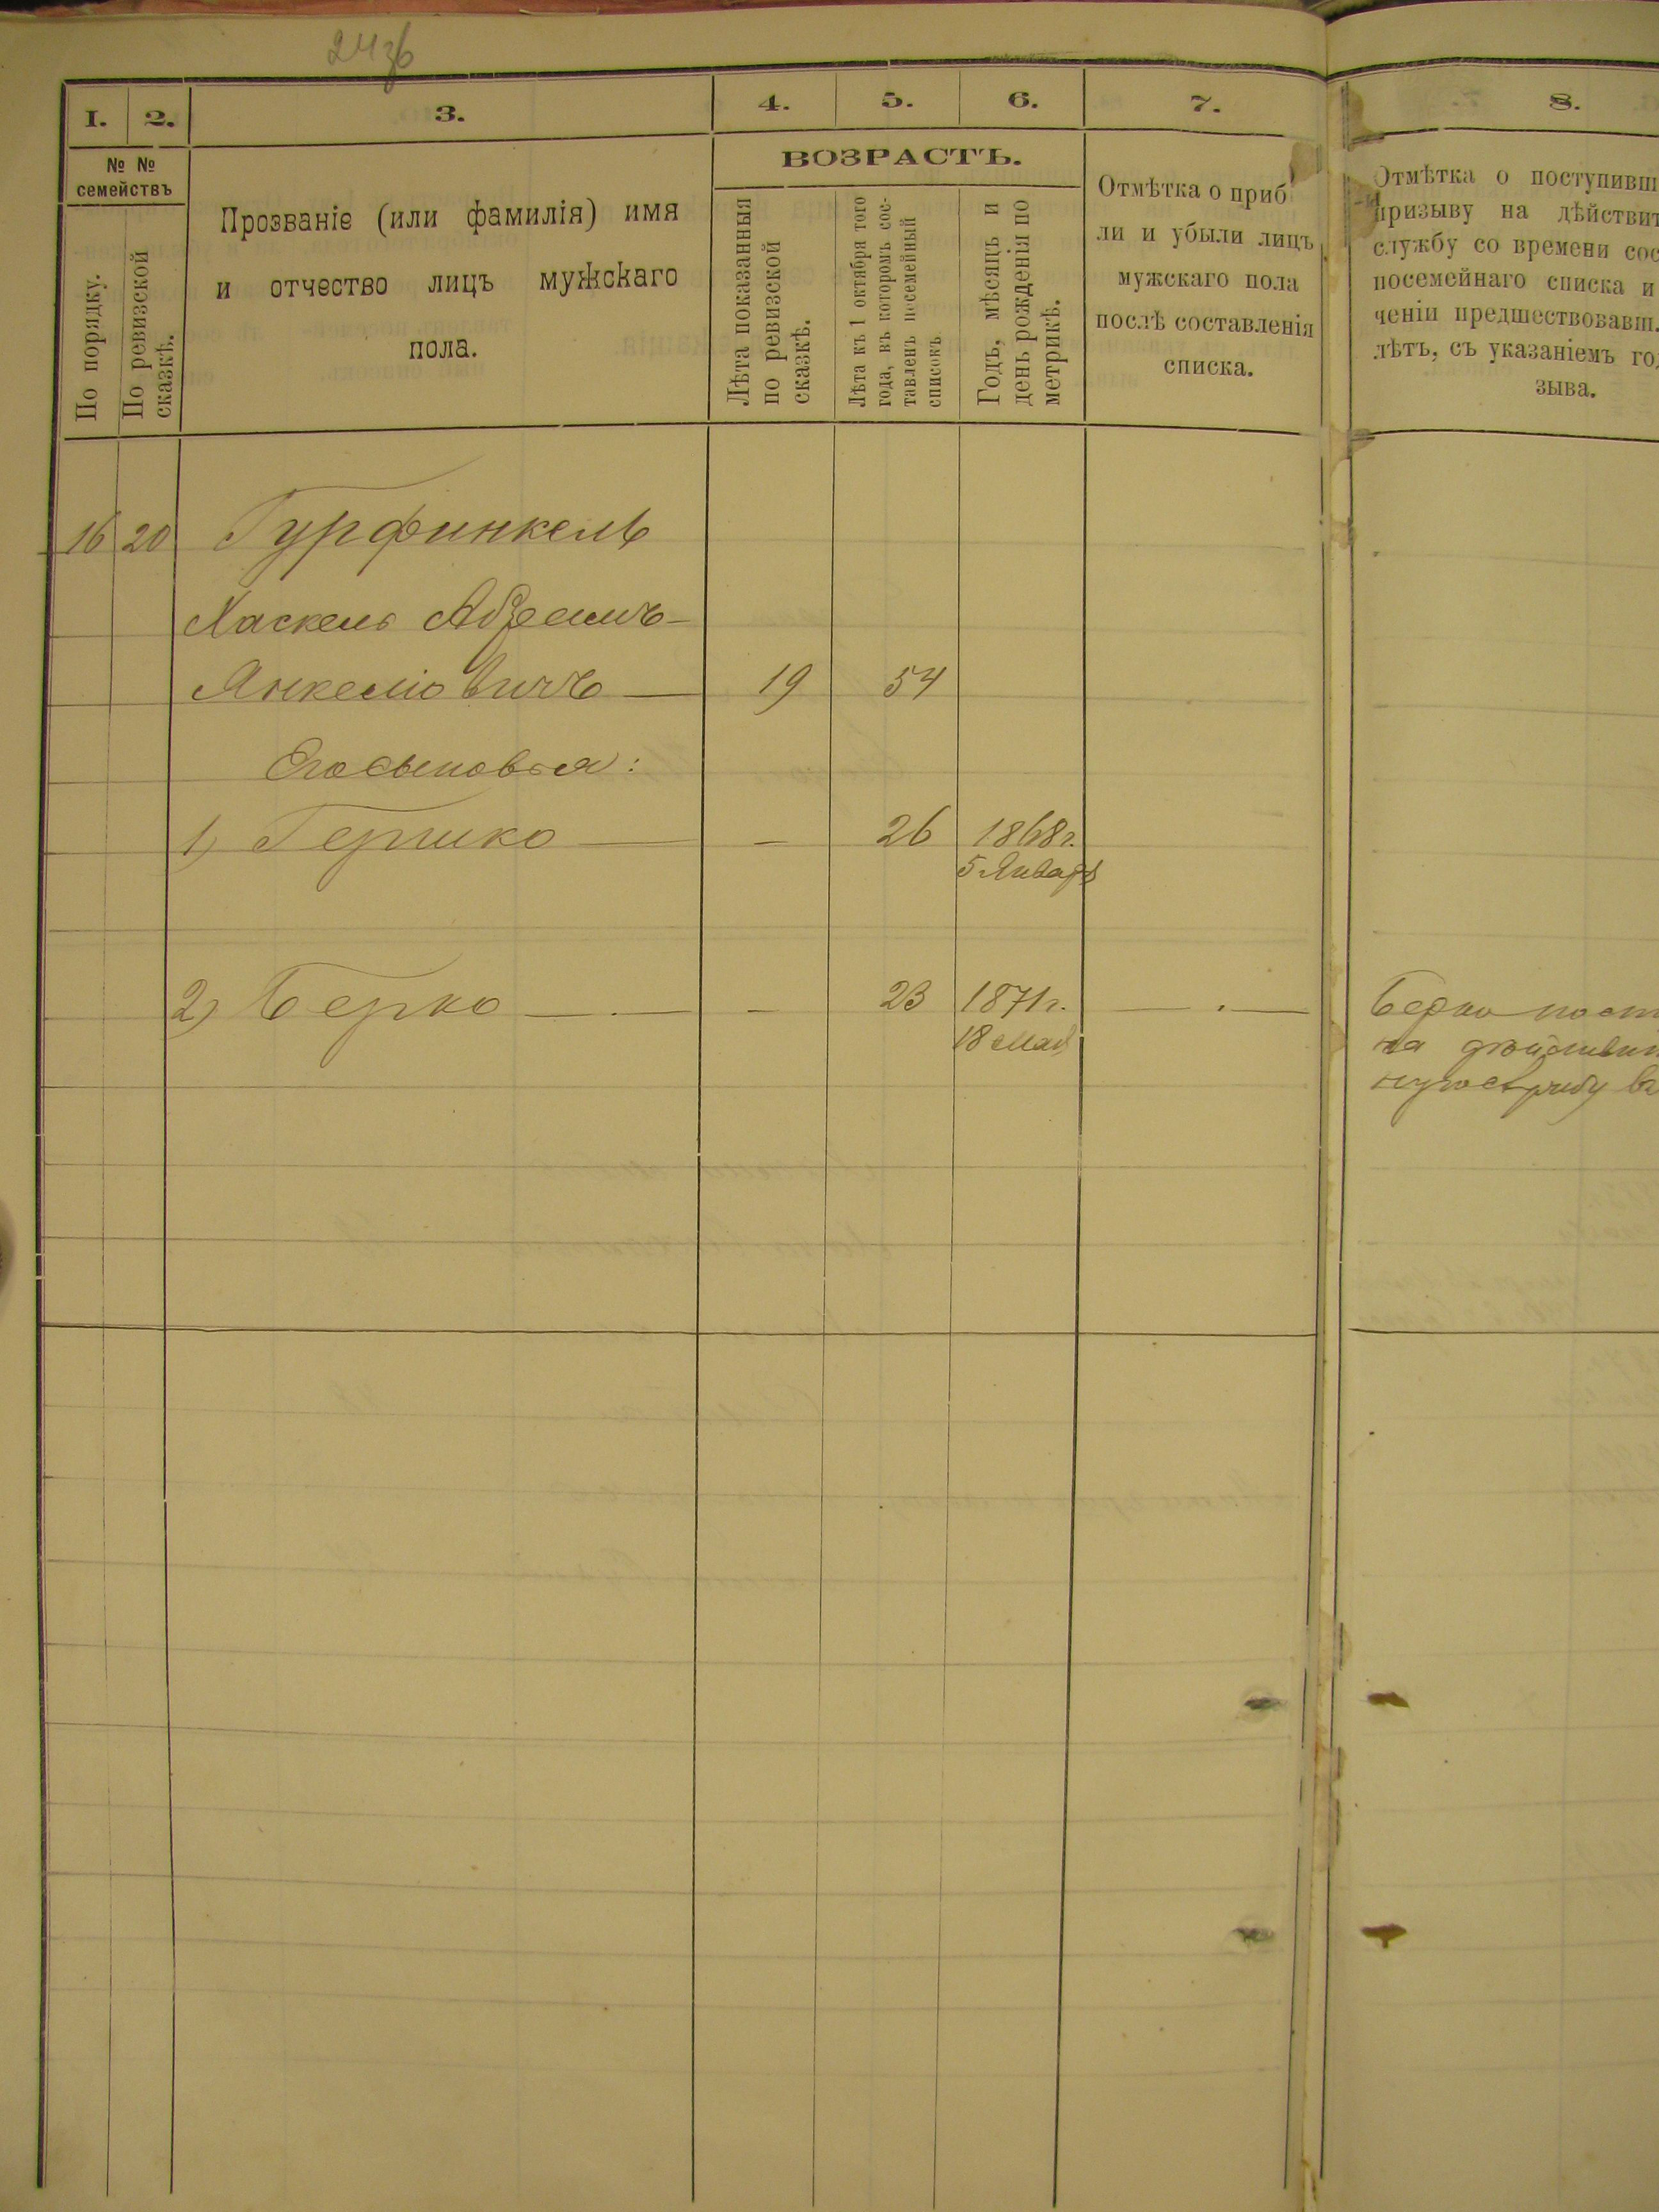 2436
1. 2. 3. 4. 5. 6. 7. 8.
№ № семействъ
По порядку.
По ревизской сказкѣ.
Прозваніе (или фамилія) имя
и отчество лицъ мужскаго
пола.
ВОЗРАСТЪ.
Лѣта показанныя
по ревизской
сказкѣ.
Лѣта къ 1 октября того
года, въ которомъ сос-
тавленъ посемейный
списокъ
Годъ, мѣсяцъ и
день рожденія по
метрикѣ.
Отмѣтка о приб
ли и убыли лицъ
мужскаго пола
послѣ составленія
списка.
Отмѣтка о поступивш
призыву на дѣйствит
службу со времени сос
посемейнаго списка и
ченіи предшествовавш.
лѣтъ, съ указаніемъ го
зыва.
16 20 Гурфинкель
Хаскель
Янкеліовичъ — 19 54
Его сыновья:
1) Гершко — — 26 1868г.
5 Января
2) Берко — . — — 23 1871г. — . —
18 Мая
Берко пост
на дѣйствит
ную службу въ